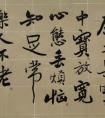 中寶放寬
心態去煩惱
知足常
樂人不老